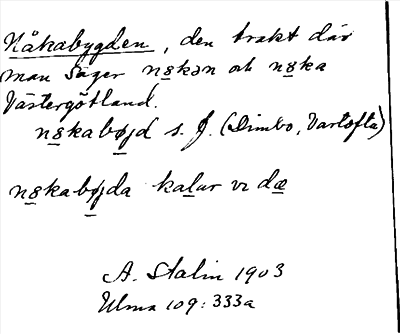 Nåkabygden, den trakt där
man säger nskən och nska
Västergötland.
nskabøjd s. f. (Dimbo, Vartofta)
nskabøjda kalur vi dæ
A. Stalin 1903
Ulma 109:333a